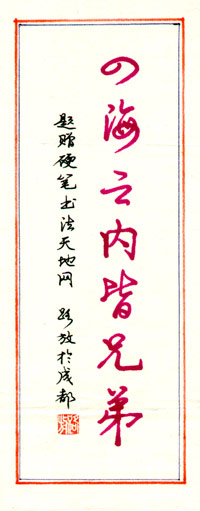 四海之内皆兄弟
题赠硬笔书法天地网 路放於成都